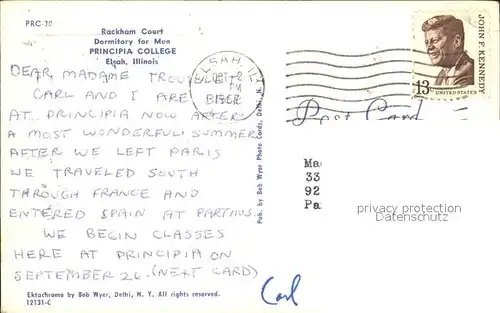 PRC-30
Rackham Court
Dormitory for Men
PRINCIPIA COLLEGE
Elsah, Illinois
ELSAH, ILL
PM
JOHN F. KENNEDY
13c
UNITED STATES
DEAR MADAME
CARL AND I ARE BACK
AT PRINCIPIA NOW AFTER
A MOST WONDERFUL SUMMER.
AFTER WE LEFT PARIS
WE TRAVELED SOUTH
THROUGH FRANCE AND
ENTERED SPAIN AT
WE BEGIN CLASSES
HERE AT PRINCIPIA ON
SEPTEMBER 26. (NEXT CARD)
Carl
Pub. by Bob Wyer Photo Cards, Delhi, N. Y.
Post Card
Ma
33
92
Pa
privacy protection
Datenschutz
Ektachrome by Bob Wyer, Delhi, N. Y. All rights reserved.
12131-C